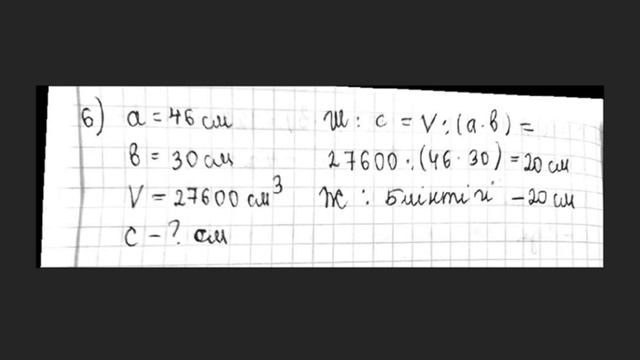 6) a = 46 см
в = 30 см
V = 27600 см³
c – ? см
Ш: c = V:(a·в) =
27600:(46·30) = 20 см
Ж: Биіктігі – 20 см